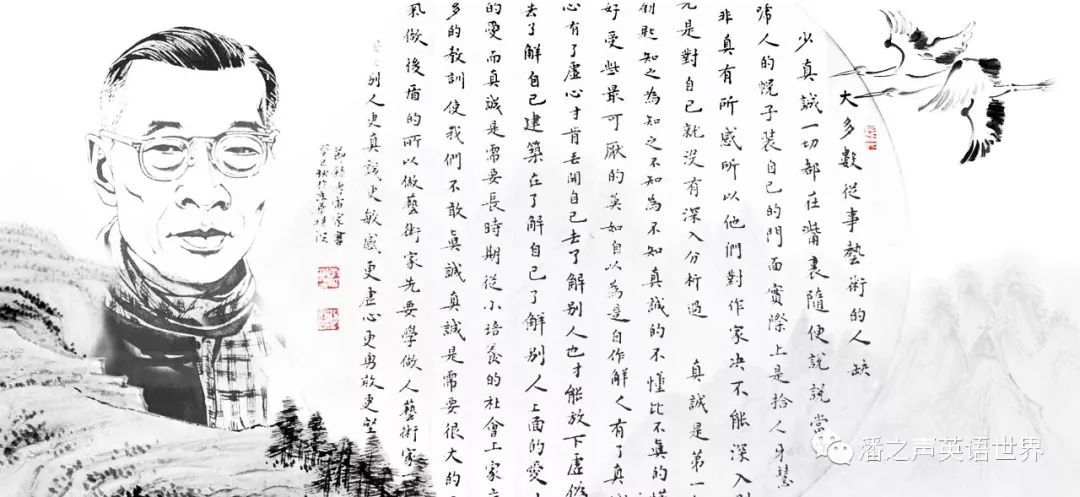 大多數從事藝術的人缺
少真誠一切都在嘴裏隨便說說當
唬人的幌子裝自己的門面實際上是拾人牙慧
非真有所感所以他們對作家決不能深入
先是對自己就沒有深入分析過 真誠是第一
匙知之為知之不知為不知真誠的不懂比不真的
好受些最可厭的莫如自以為是自作解人有了真
心有了虛心才肯丟開自己去了解別人也才能放下虛偽
去了解自己建築在了解自己了解別人上面的愛
的愛而真誠是需要長時期從小培養的社會上家
多的教訓使我們不敢真誠真誠是需要很大的
氣做後盾的所以做藝術家先要學做人藝術家
別人更真誠更敏感更虛心更勇敢更堅
節錄傅雷家書
癸巳秋於
潘之声英语世界